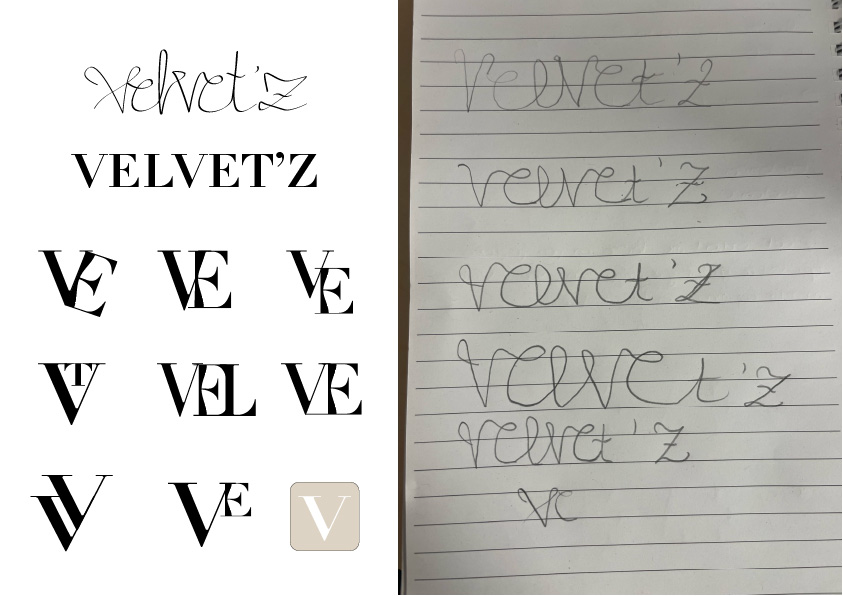 Velvet'z
VELVET'Z
VE VE VE
VT VEL VE
VV VE V
Velvet'z
Velvet'z
Velvet'z
Velvet'z
Velvet'z
Ve